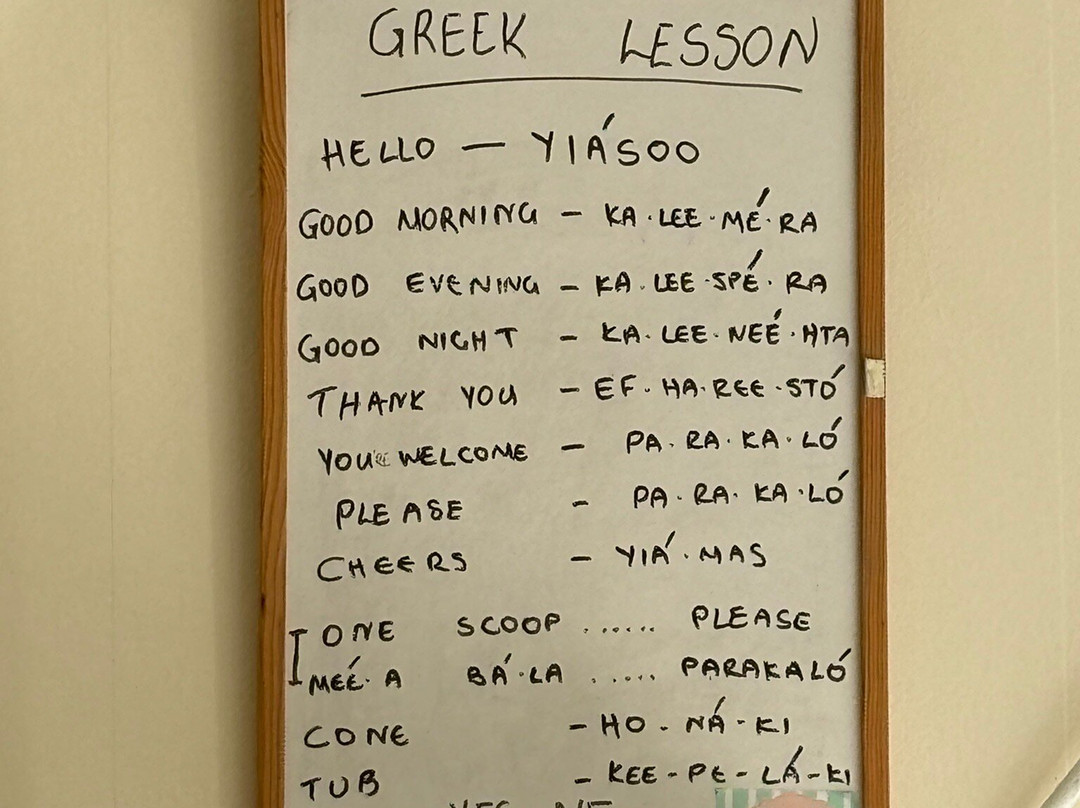 GREEK LESSON
HELLO — YIÁSOO
GOOD MORNING - KA·LEE·MÉ·RA
GOOD EVENING - KA·LEE·SPÉ·RA
GOOD NIGHT - KA·LEE·NEÉ·HTA
THANK YOU - EF·HA·REE·STÓ
YOU'RE WELCOME - PA·RA·KA·LÓ
PLEASE - PA·RA·KA·LÓ
CHEERS - YIÁ·MAS
ONE SCOOP ...... PLEASE
MEÉ·A BÁ·LA ..... PARAKALÓ
CONE - HO-NÁ-KI
TUB - KEE-PE-LÁ-KI